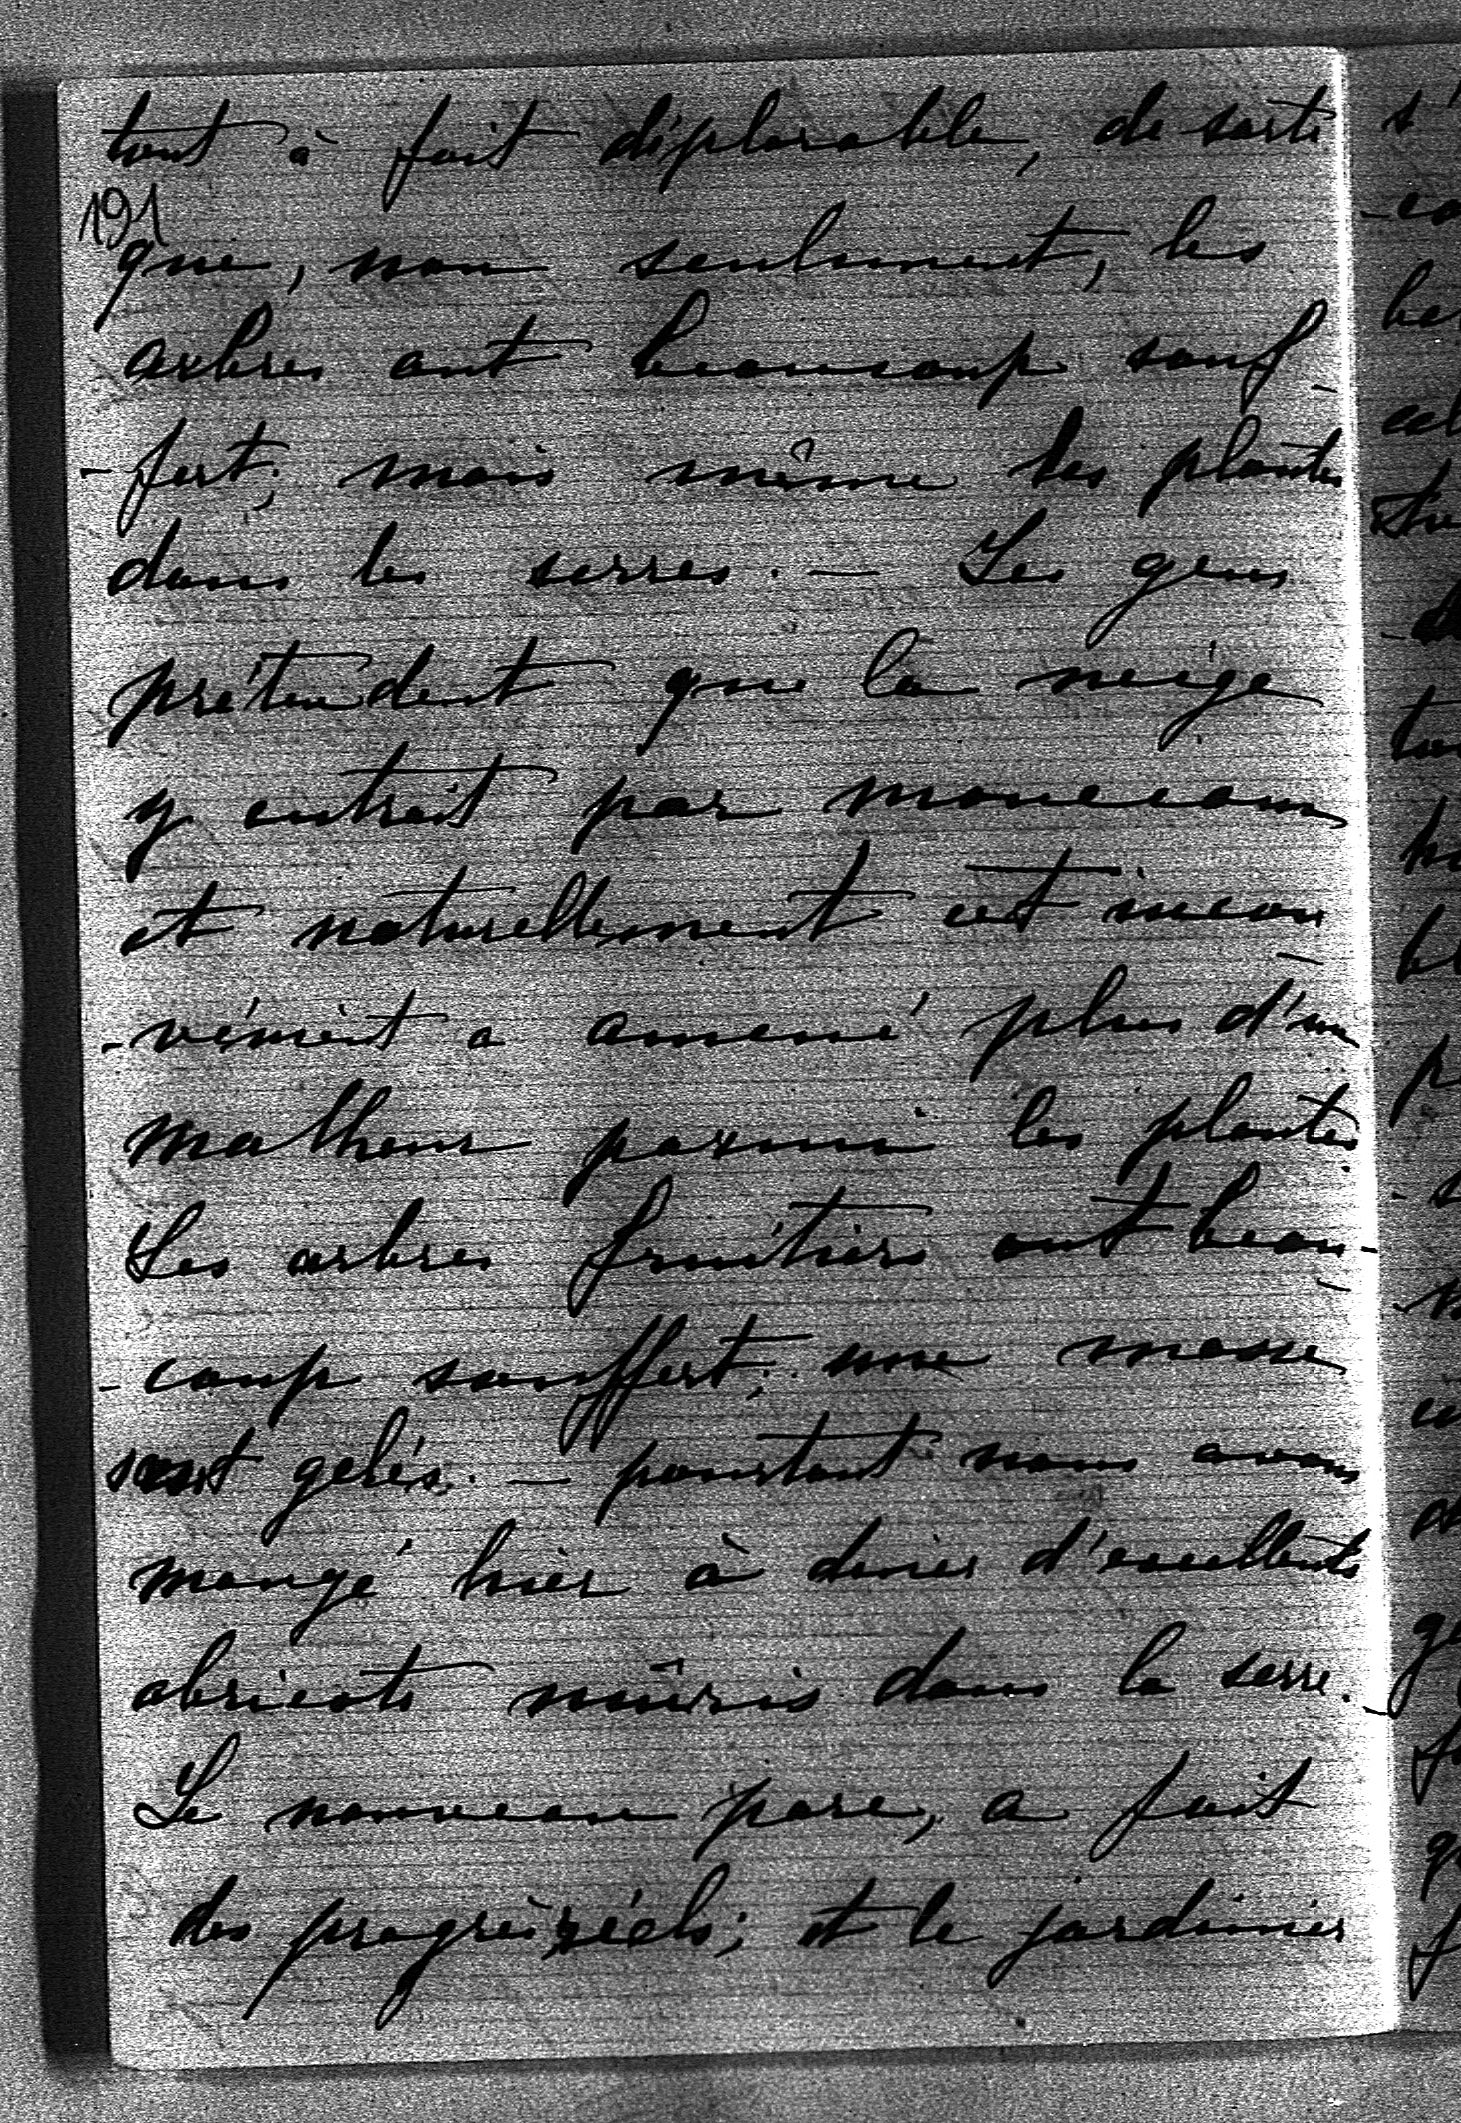 tout à fait déplorable, de sorte
191
que, non seulement, les
arbres ont beaucoup souf-
-fert; mais même les plantes
dans les serres. — Les gens
prétendent que la neige
y entrait par monceaux
et naturellement cet incon-
-vénient a amené plus d'un
malheur parmi les plantes.
Les arbres fruitiers ont beau-
-coup souffert; une masse
sont gelés. — pourtant nous avons
mangé hier à diner d'excellents
abricots mûris dans la serre. —
Le nouveau parc, a fait
des progrès réels; et le jardinier